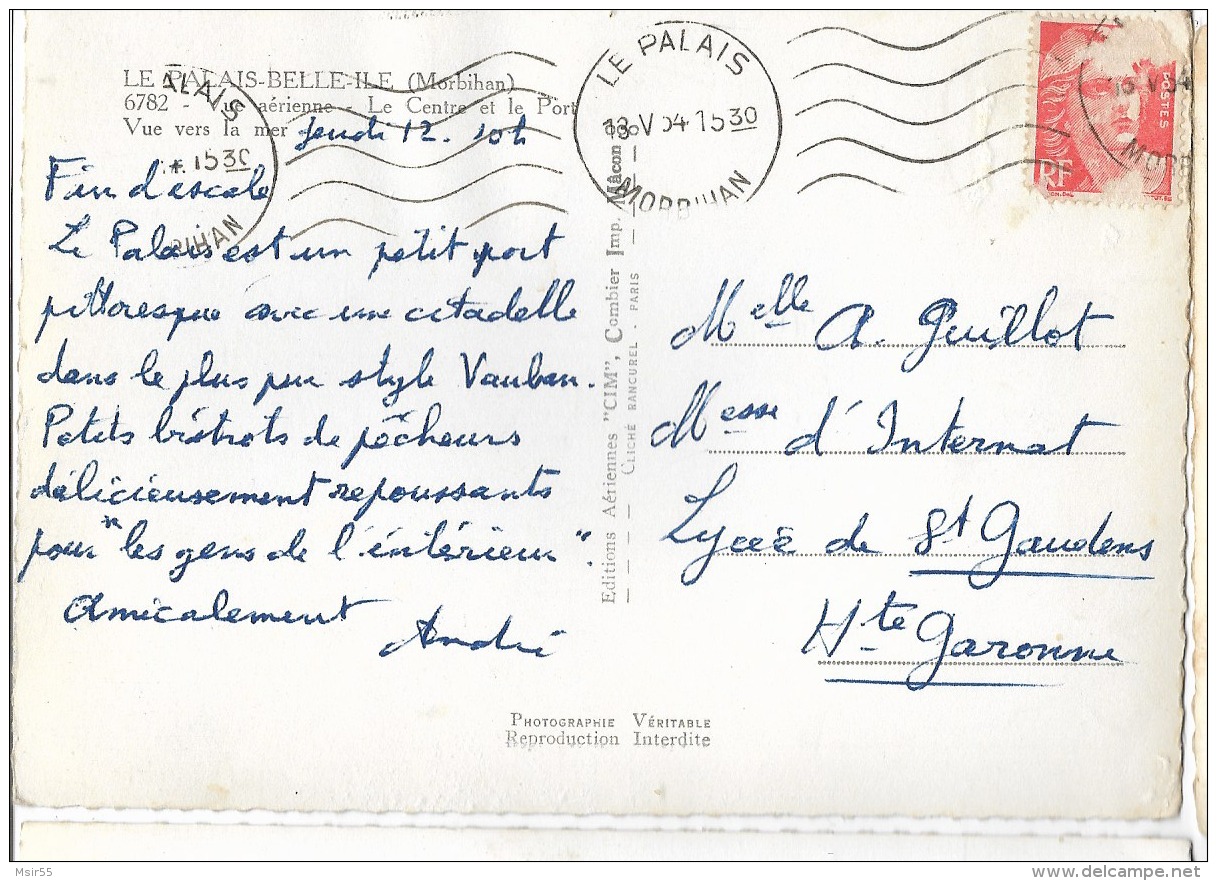 LE PALAIS-BELLE-ILE (Morbihan)
6782 - Vue aérienne - Le Centre et le Port
Vue vers la mer
Jeudi 12. 10h
Fin d'escale
Le Palais est un petit port
pittoresque avec une citadelle
dans le plus pur style Vauban.
Petits bistrots de pêcheurs
délicieusement repoussants
pour "les gens de l'intérieur".
Amicalement
André
ALAIS
15 30
BIHAN
LE PALAIS
13 V 54 15 30
MORBIHAN
POSTES
RF
Editions Aériennes "CIM", Combier Imp. Mâcon
CLICHÉ RANCUREL . PARIS
Melle A. Guillot
Messe d'Internat
Lycée de St Gaudens
Hte Garonne
PHOTOGRAPHIE VÉRITABLE
Reproduction Interdite
Msir55
delcampe.net